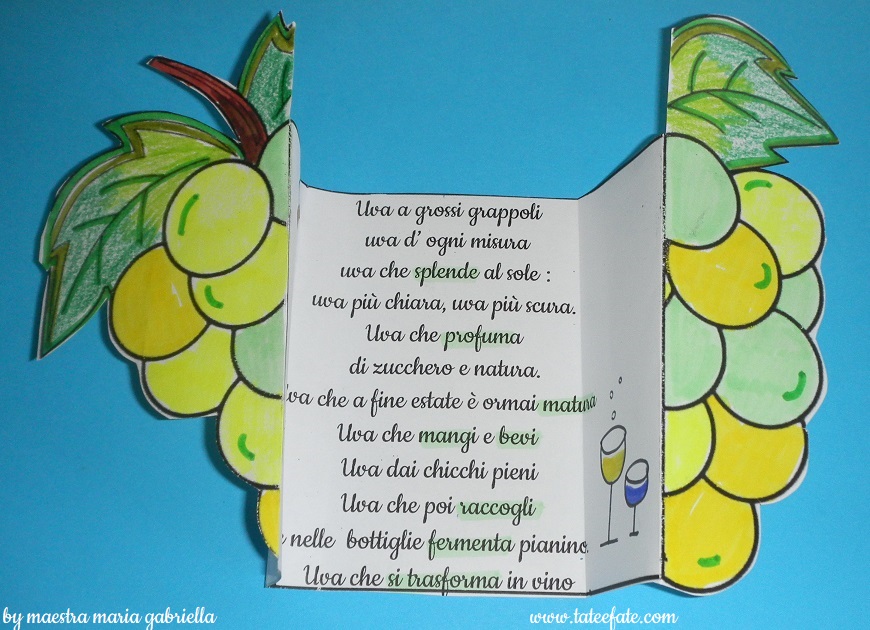 Uva a grossi grappoli
uva d' ogni misura
uva che splende al sole :
uva più chiara, uva più scura.
Uva che profuma
di zucchero e natura.
Uva che a fine estate è ormai matura
Uva che mangi e bevi
Uva dai chicchi pieni
Uva che poi raccogli
e nelle bottiglie fermenta pianino.
Uva che si trasforma in vino
by maestra maria gabriella
www.tateefate.com